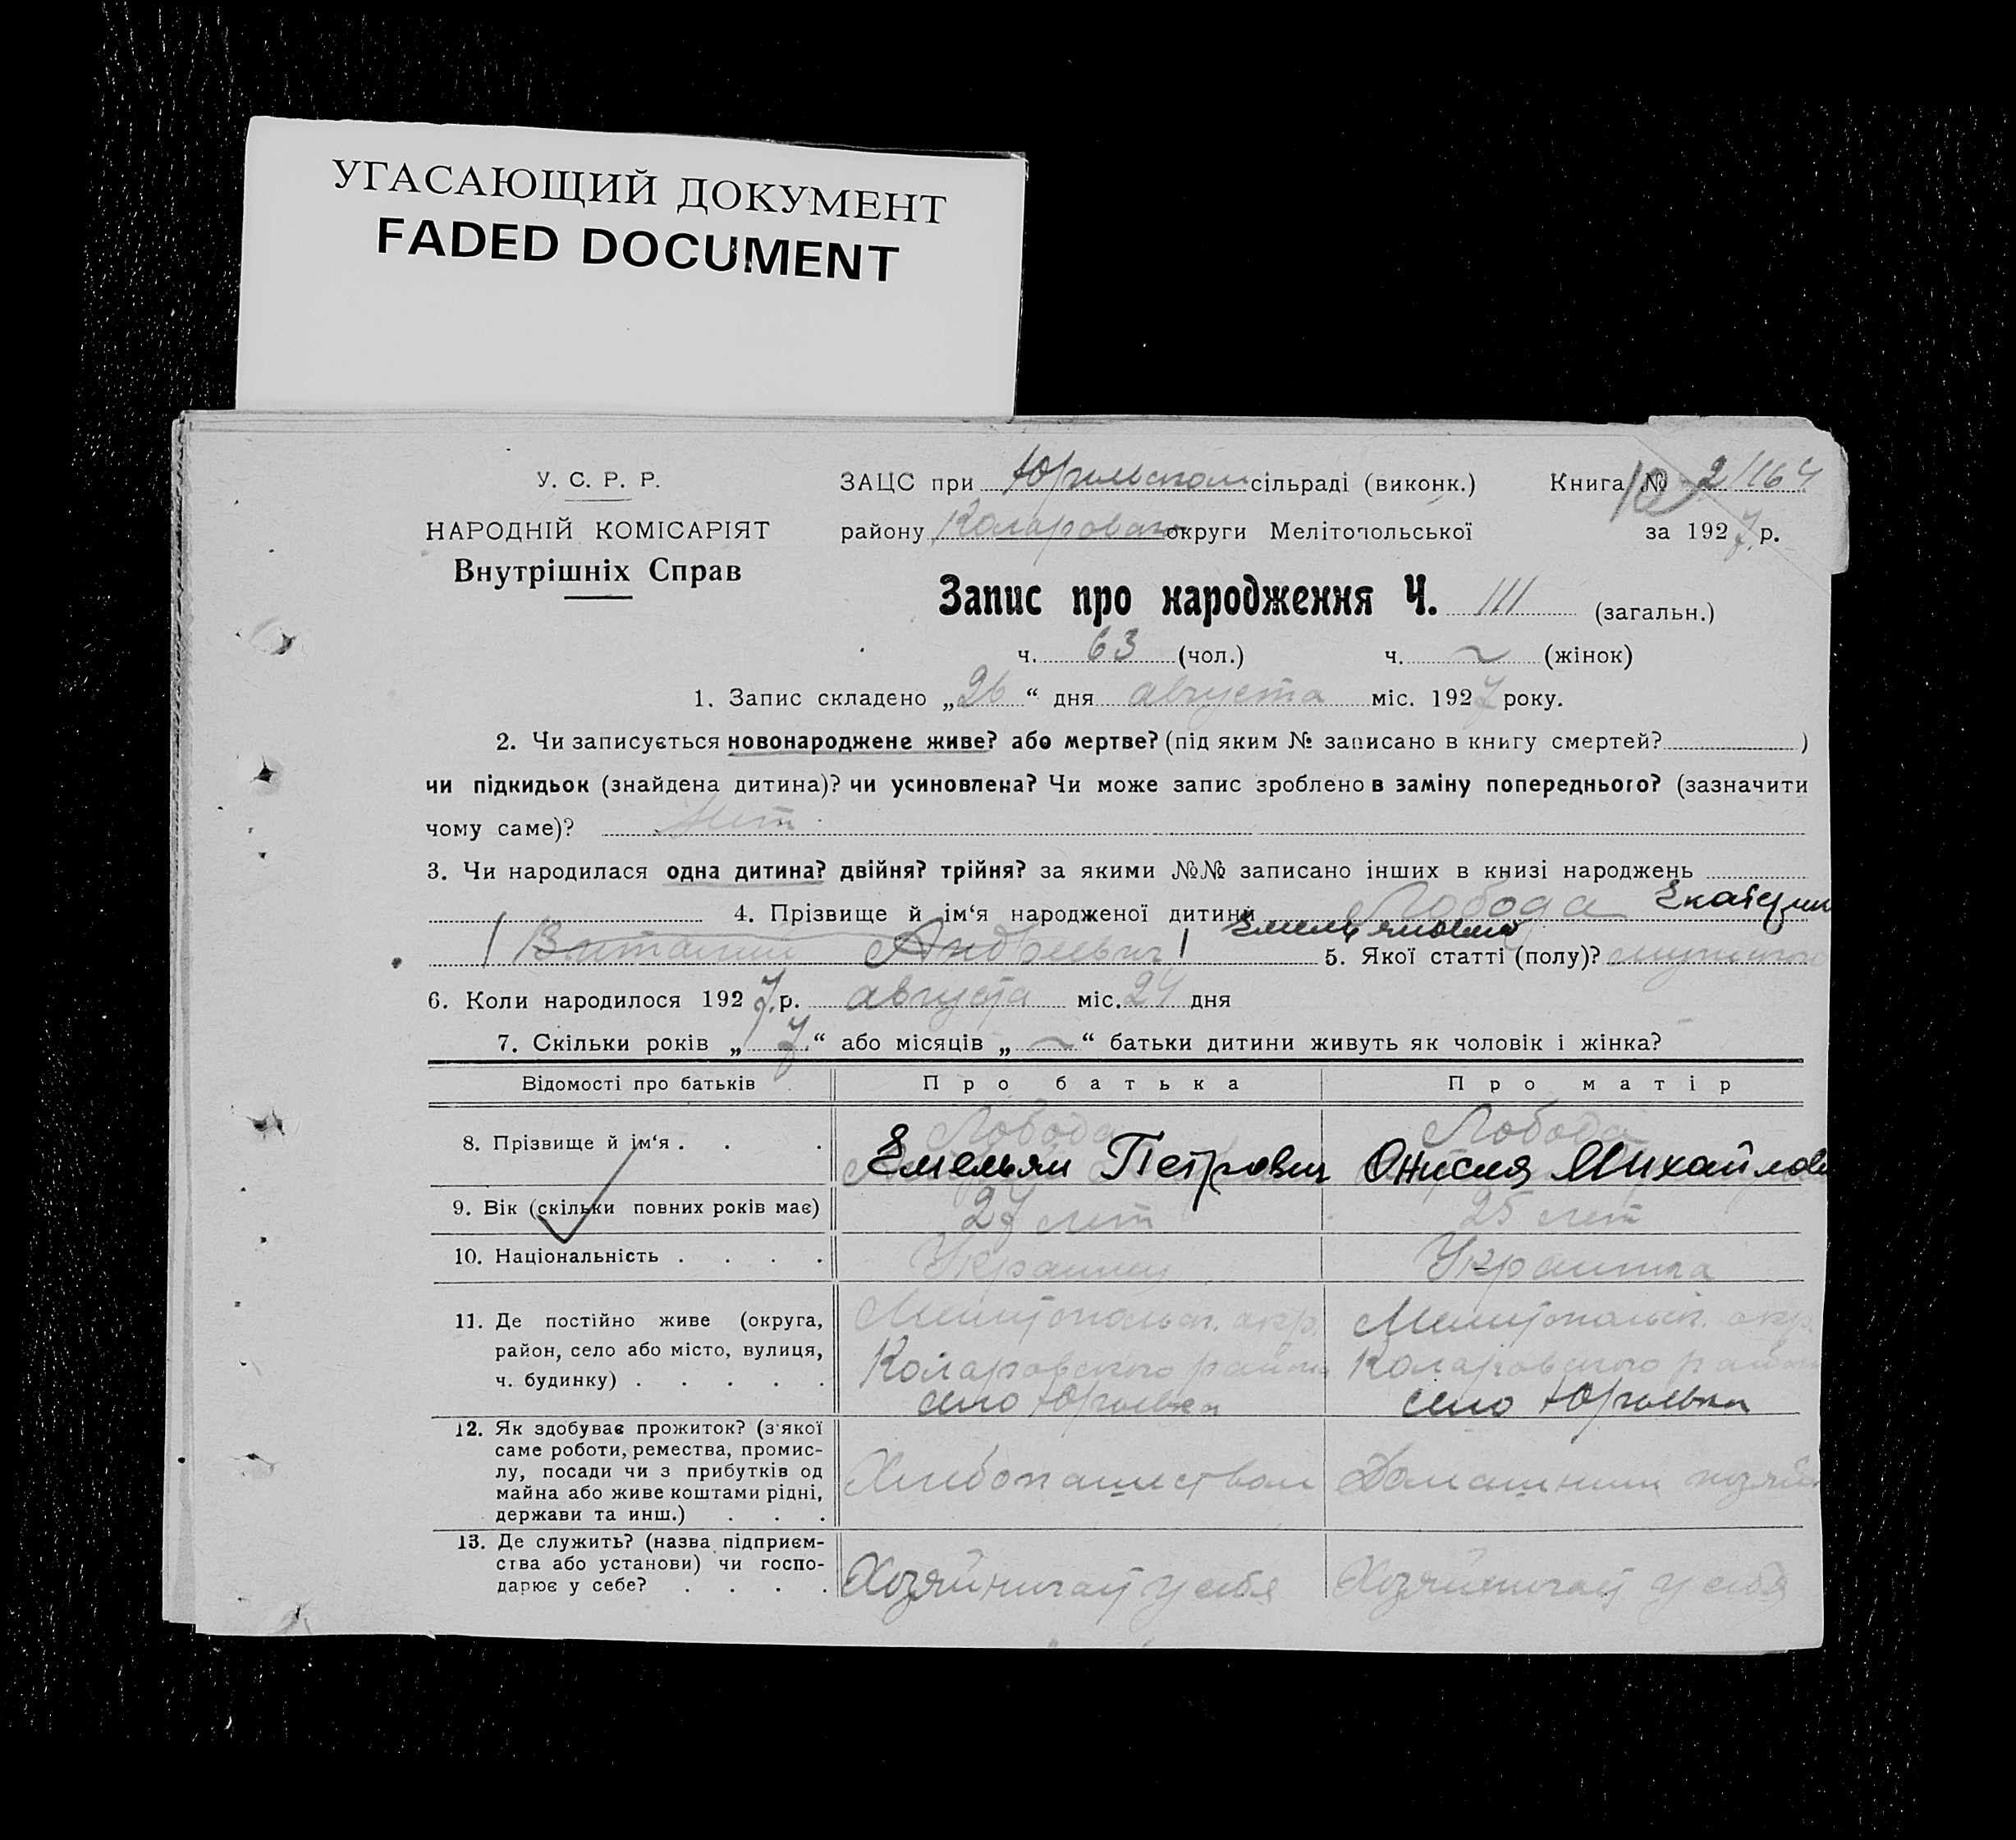 УГАСАЮЩИЙ ДОКУМЕНТ
FADED DOCUMENT
У. С. Р. Р.
НАРОДНІЙ КОМІСАРІЯТ
Внутрішніх Справ
ЗАЦС при сільраді (виконк.)
Книга № 2/164
району округи Мелітопольської
за 1927 р.
Запис про народження Ч. 111 (загальн.)
ч. 63 (чол.) ч. ~ (жінок)
1. Запис складено „26“ дня августа міс. 1927 року.
2. Чи записується новонароджене живе? або мертве? (під яким № записано в книгу смертей? )
чи підкидьок (знайдена дитина)? чи усиновлена? Чи може запис зроблено в заміну попереднього? (зазначити
чому саме)? Нет
3. Чи народилася одна дитина? двійня? трійня? за якими №№ записано інших в книзі народжень
4. Прізвище й ім‘я народженої дитини Лобода Екатерин
Виталий Андреевич 5. Якої статті (полу)?
6. Коли народилося 1927 р. августа міс. 24 дня
7. Скільки років „7“ або місяців „~“ батьки дитини живуть як чоловік і жінка?
Відомості про батьків Про батька Про матір
8. Прізвище й ім‘я . . . Лобода Лобода
Емельян Петрович Онисия Михайлов
9. Вік (скільки повних років має) 27 лет 25 лет
10. Національність . . . . Украинец Украинка
11. Де постійно живе (округа, Мелитопольск. окр. Мелитопольск. окр.
район, село або місто, вулиця, Коларовского района Коларовского района
ч. будинку) . . . . . село Юрьевка село Юрьевка
12. Як здобуває прожиток? (з‘якої
саме роботи, ремества, промис-
лу, посади чи з прибутків од Хлебопашеством
майна або живе коштами рідні,
держави та инш.) . . .
13. Де служить? (назва підприєм-
ства або установи) чи госпо-
дарює у себе? . . . . у себя у себя